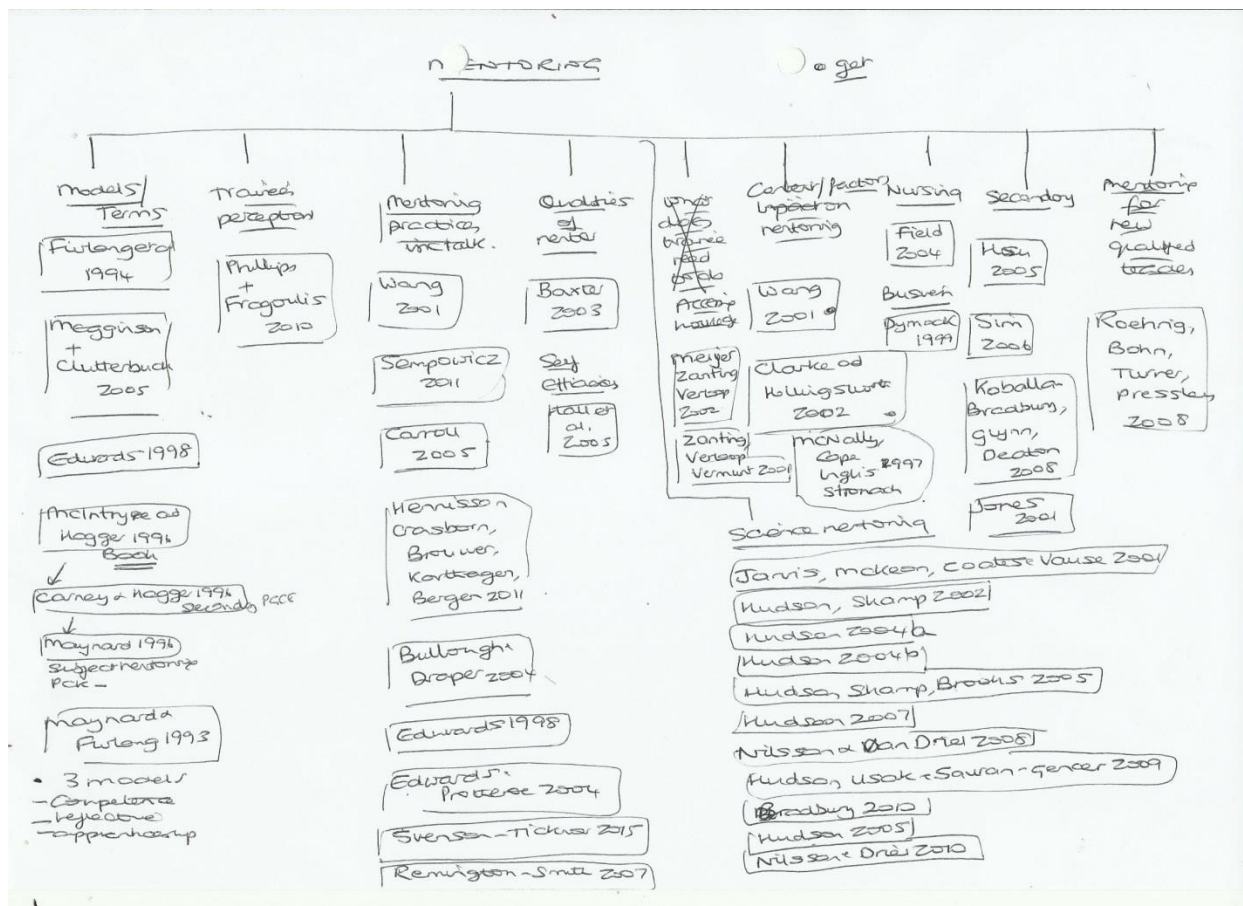 MENTORING
• get
Models/
Terms
Furlong
1994
Megginson
+
Clutterbuck
2005
Edwards 1998
McIntyre ad
Hagger 1996
Book
Carney & Hagge 1996
Secondy PGCE
Maynard 1996
Subject mentoring
PCK -
Maynard &
Furlong 1993
• 3 models
- Competence
- reflective
- apprenticeship
Trainees
perception
Phillips
+
Fragoulis
2010
Mentoring
practices
inc talk.
Wang
2001
Sempowicz
2011
Carroll
2005
Hennisson
Crasborn,
Brouwer,
Korthagen,
Bergen 2011
Bullough &
Draper 2004
Edwards 1998
Edwards &
Protheroe 2004
Svenson-Ticknor 2015
Remington-Smith 2007
Qualities
of
mentor
Baxter
2003
Self
Efficacies
et
al,
2005
does
trainee
Accessing
knowledge
Meijer
Zanting
Verloop
2002
Zanting,
Verloop
Vermunt 2001
Context/factors
impact on
mentoring
Wang
2001
Clarke ad
Hollingsworth
2002
McNally,
Cope
Inglis 1997
Stronach
Nursing
Field
2004
Dymock
1999
Secondary
Hsu
2005
Sim
2006
Koballa
Bradbury,
Glynn,
Deaton
2008
Jones
2001
Mentoring
for
new
qualified
teachers
Roehrig,
Bohn,
Turner,
Pressley
2008
Science mentoring
Jarvis, McKeon, Coates & Vause 2001
Hudson, Skamp 2002
Hudson 2004a
Hudson 2004b
Hudson, Skamp, Brooks 2005
Hudson 2007
Nilsson & Van Driel 2008
Hudson, Usak & Savran-Gencer 2009
Bradbury 2010
Hudson 2005
Nilsson & Driel 2010